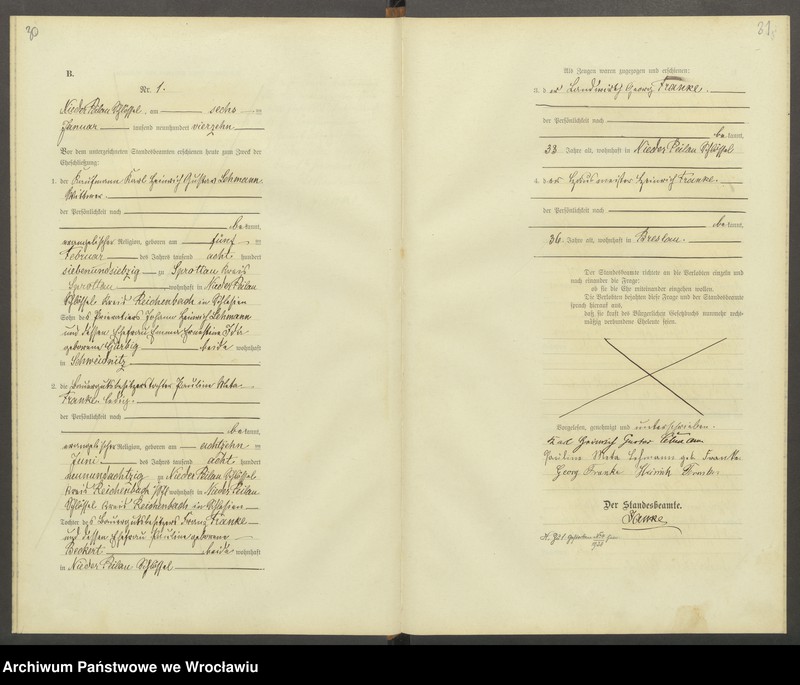 30
B.
Nr. 1.
Nieder Peilau Schlössel, am sechs ten
Januar tausend neunhundert vierzehn
Vor dem unterzeichneten Standesbeamten erschienen heute zum Zweck der
Eheschließung:
1. der Kaufmann Karl Heinrich Gustav Lehmann
Wittwer
der Persönlichkeit nach
be kannt,
evangelischer Religion, geboren am fünf ten
Februar des Jahres tausend acht hundert
siebenundsiebzig zu Sprottau Kreis
Sprottau wohnhaft in Nieder Peilau
Schlössel Kreis Reichenbach in Schlesien
Sohn des Privatiers Johann Heinrich Lehmann
und dessen Ehefrau Emma Ernestine
geborene beide wohnhaft
in Schweidnitz
2. die Bauergutsbesitzerstochter Pauline Meta
Franke, ledig.
der Persönlichkeit nach
be kannt,
evangelischer Religion, geboren am achtzehn ten
Juni des Jahres tausend acht hundert
neunundachtzig zu Nieder Peilau Schlössel
Kreis Reichenbach wohnhaft in Nieder Peilau
Schlössel Kreis Reichenbach in Schlesien
Tochter des Bauergutsbesitzers Franz Franke
und dessen Ehefrau Pauline geborene
Beckert beide wohnhaft
in Nieder Peilau Schlössel
31
Als Zeugen waren zugezogen und erschienen:
3. der Landwirth Georg Franke.
der Persönlichkeit nach
be kannt,
33 Jahre alt, wohnhaft in Nieder Peilau Schlössel
4. der Hausmeister Heinrich Franke.
der Persönlichkeit nach
be kannt,
36 Jahre alt, wohnhaft in Breslau.
Der Standesbeamte richtete an die Verlobten einzeln und
nach einander die Frage:
ob sie die Ehe miteinander eingehen wollen.
Die Verlobten bejahten diese Frage und der Standesbeamte
sprach hierauf aus,
daß sie kraft des Bürgerlichen Gesetzbuchs nunmehr recht-
mäßig verbundene Eheleute seien.
Vorgelesen, genehmigt und unterschrieben.
Karl Heinrich Gustav Lehmann
Pauline Meta Lehmann geb. Franke
Georg Franke Heinrich Franke
Der Standesbeamte.
Franke
Archiwum Państwowe we Wrocławiu